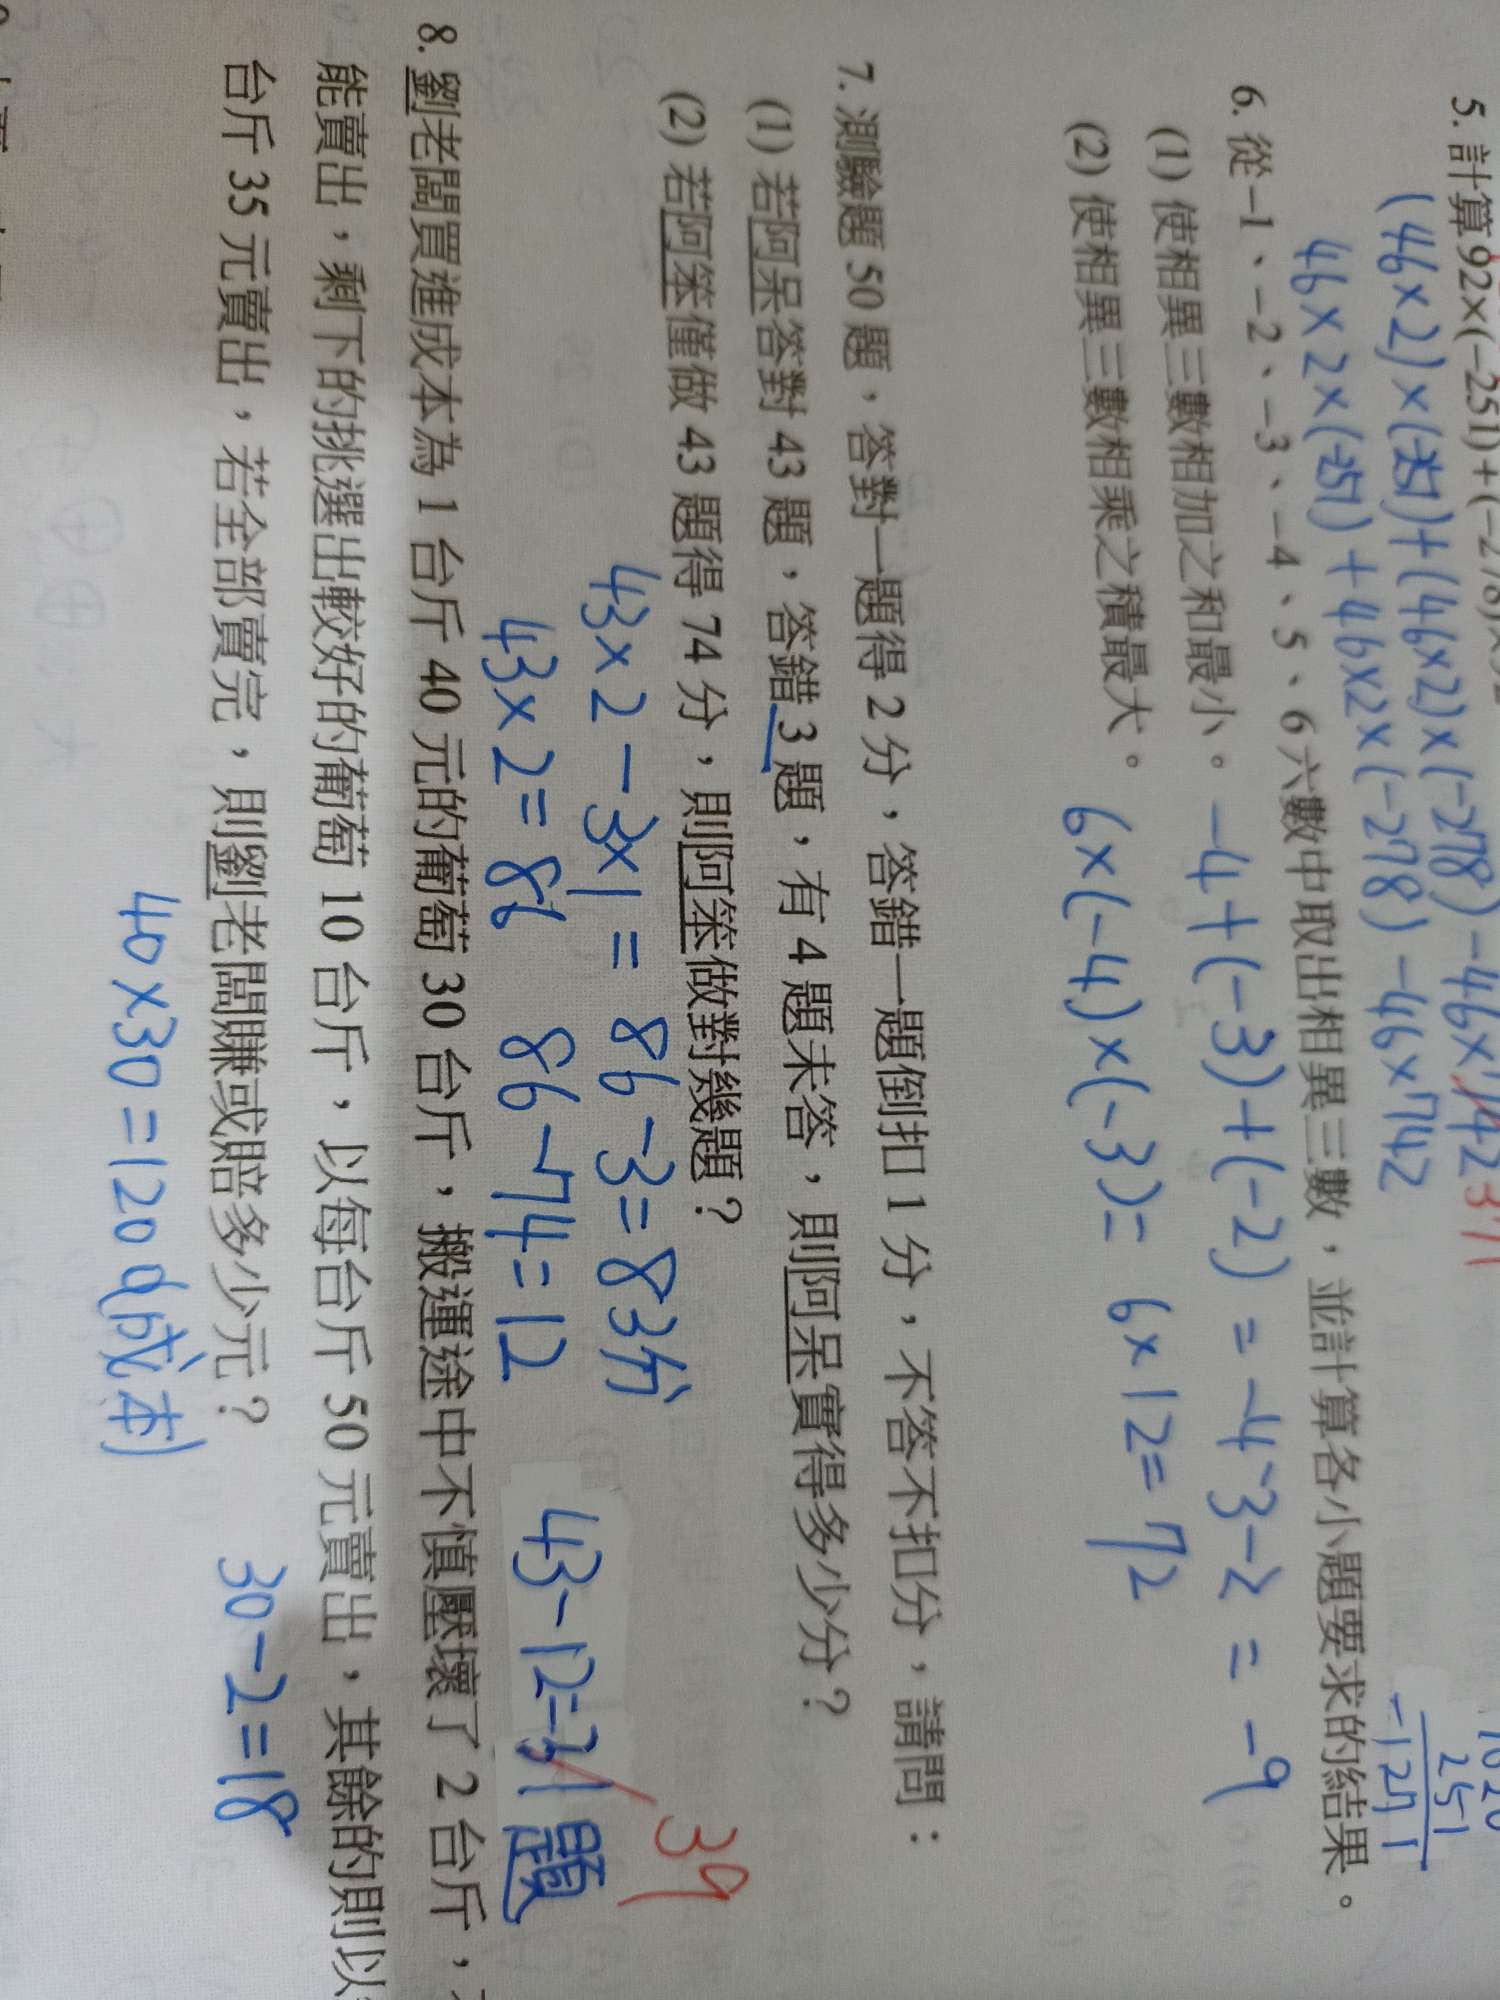 5. 計算92×(−251)+(−278)×92
(46×2)×(-251)+(46×2)×(-278)-46×742 371
46×2×(-251)+46×2×(-278)-46×742
251
6. 從−1、−2、−3、−4、5、6六數中取出相異三數，並計算各小題要求的結果。
(1) 使相異三數相加之和最小。 -4+(-3)+(-2)=-4-3-2=-9
(2) 使相異三數相乘之積最大。 6×(-4)×(-3)=6×12=72
7. 測驗題 50 題，答對一題得 2 分，答錯一題倒扣 1 分，不答不扣分，請問：
(1) 若阿呆答對 43 題，答錯 3 題，有 4 題未答，則阿呆實得多少分？
(2) 若阿笨僅做 43 題得 74 分，則阿笨做對幾題？
43×2-3×1=86-3=83分
39
43×2=86 86-74=12 43-12=31題
8. 劉老闆買進成本為 1 台斤 40 元的葡萄 30 台斤，搬運途中不慎壓壞了 2 台斤，
能賣出，剩下的挑選出較好的葡萄 10 台斤，以每台斤 50 元賣出，其餘的則以
台斤 35 元賣出，若全部賣完，則劉老闆賺或賠多少元？
30-2=18
40×30=1200(成本)